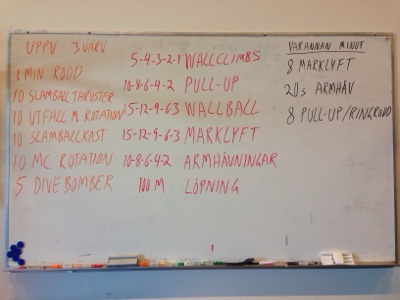 UPPV 3 VARV
1 MIN RODD
10 SLAMBALLTHRUSTER
10 UTFALL M ROTATION
10 SLAMBALLKAST
10 MC ROTATION
5 DIVEBOMBER
5-4-3-2-1 WALLCLIMBS
10-8-6-4-2 PULL-UP
15-12-9-6-3 WALLBALL
15-12-9-6-3 MARKLYFT
10-8-6-4-2 ARMHÄVNINGAR
100 M LÖPNING
VARANNAN MINUT
8 MARKLYFT
20s ARMHÄV
8 PULL-UP/RINGRODD